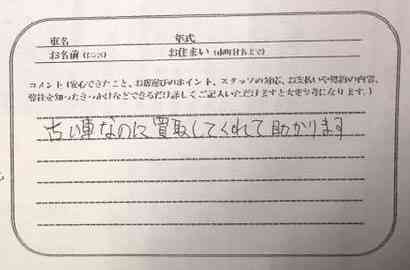 車名 年式
お名前(ｲﾆｼｬﾙ) お住まい(市町村名まで)
コメント(安心できたこと、お店選びのポイント、スタッフの対応、お支払いや契約の内容、
弊社を知ったきっかけなどできるだけ詳しくご記入いただけますと大変参考になります。)
古い車なのに買取してくれて助かります